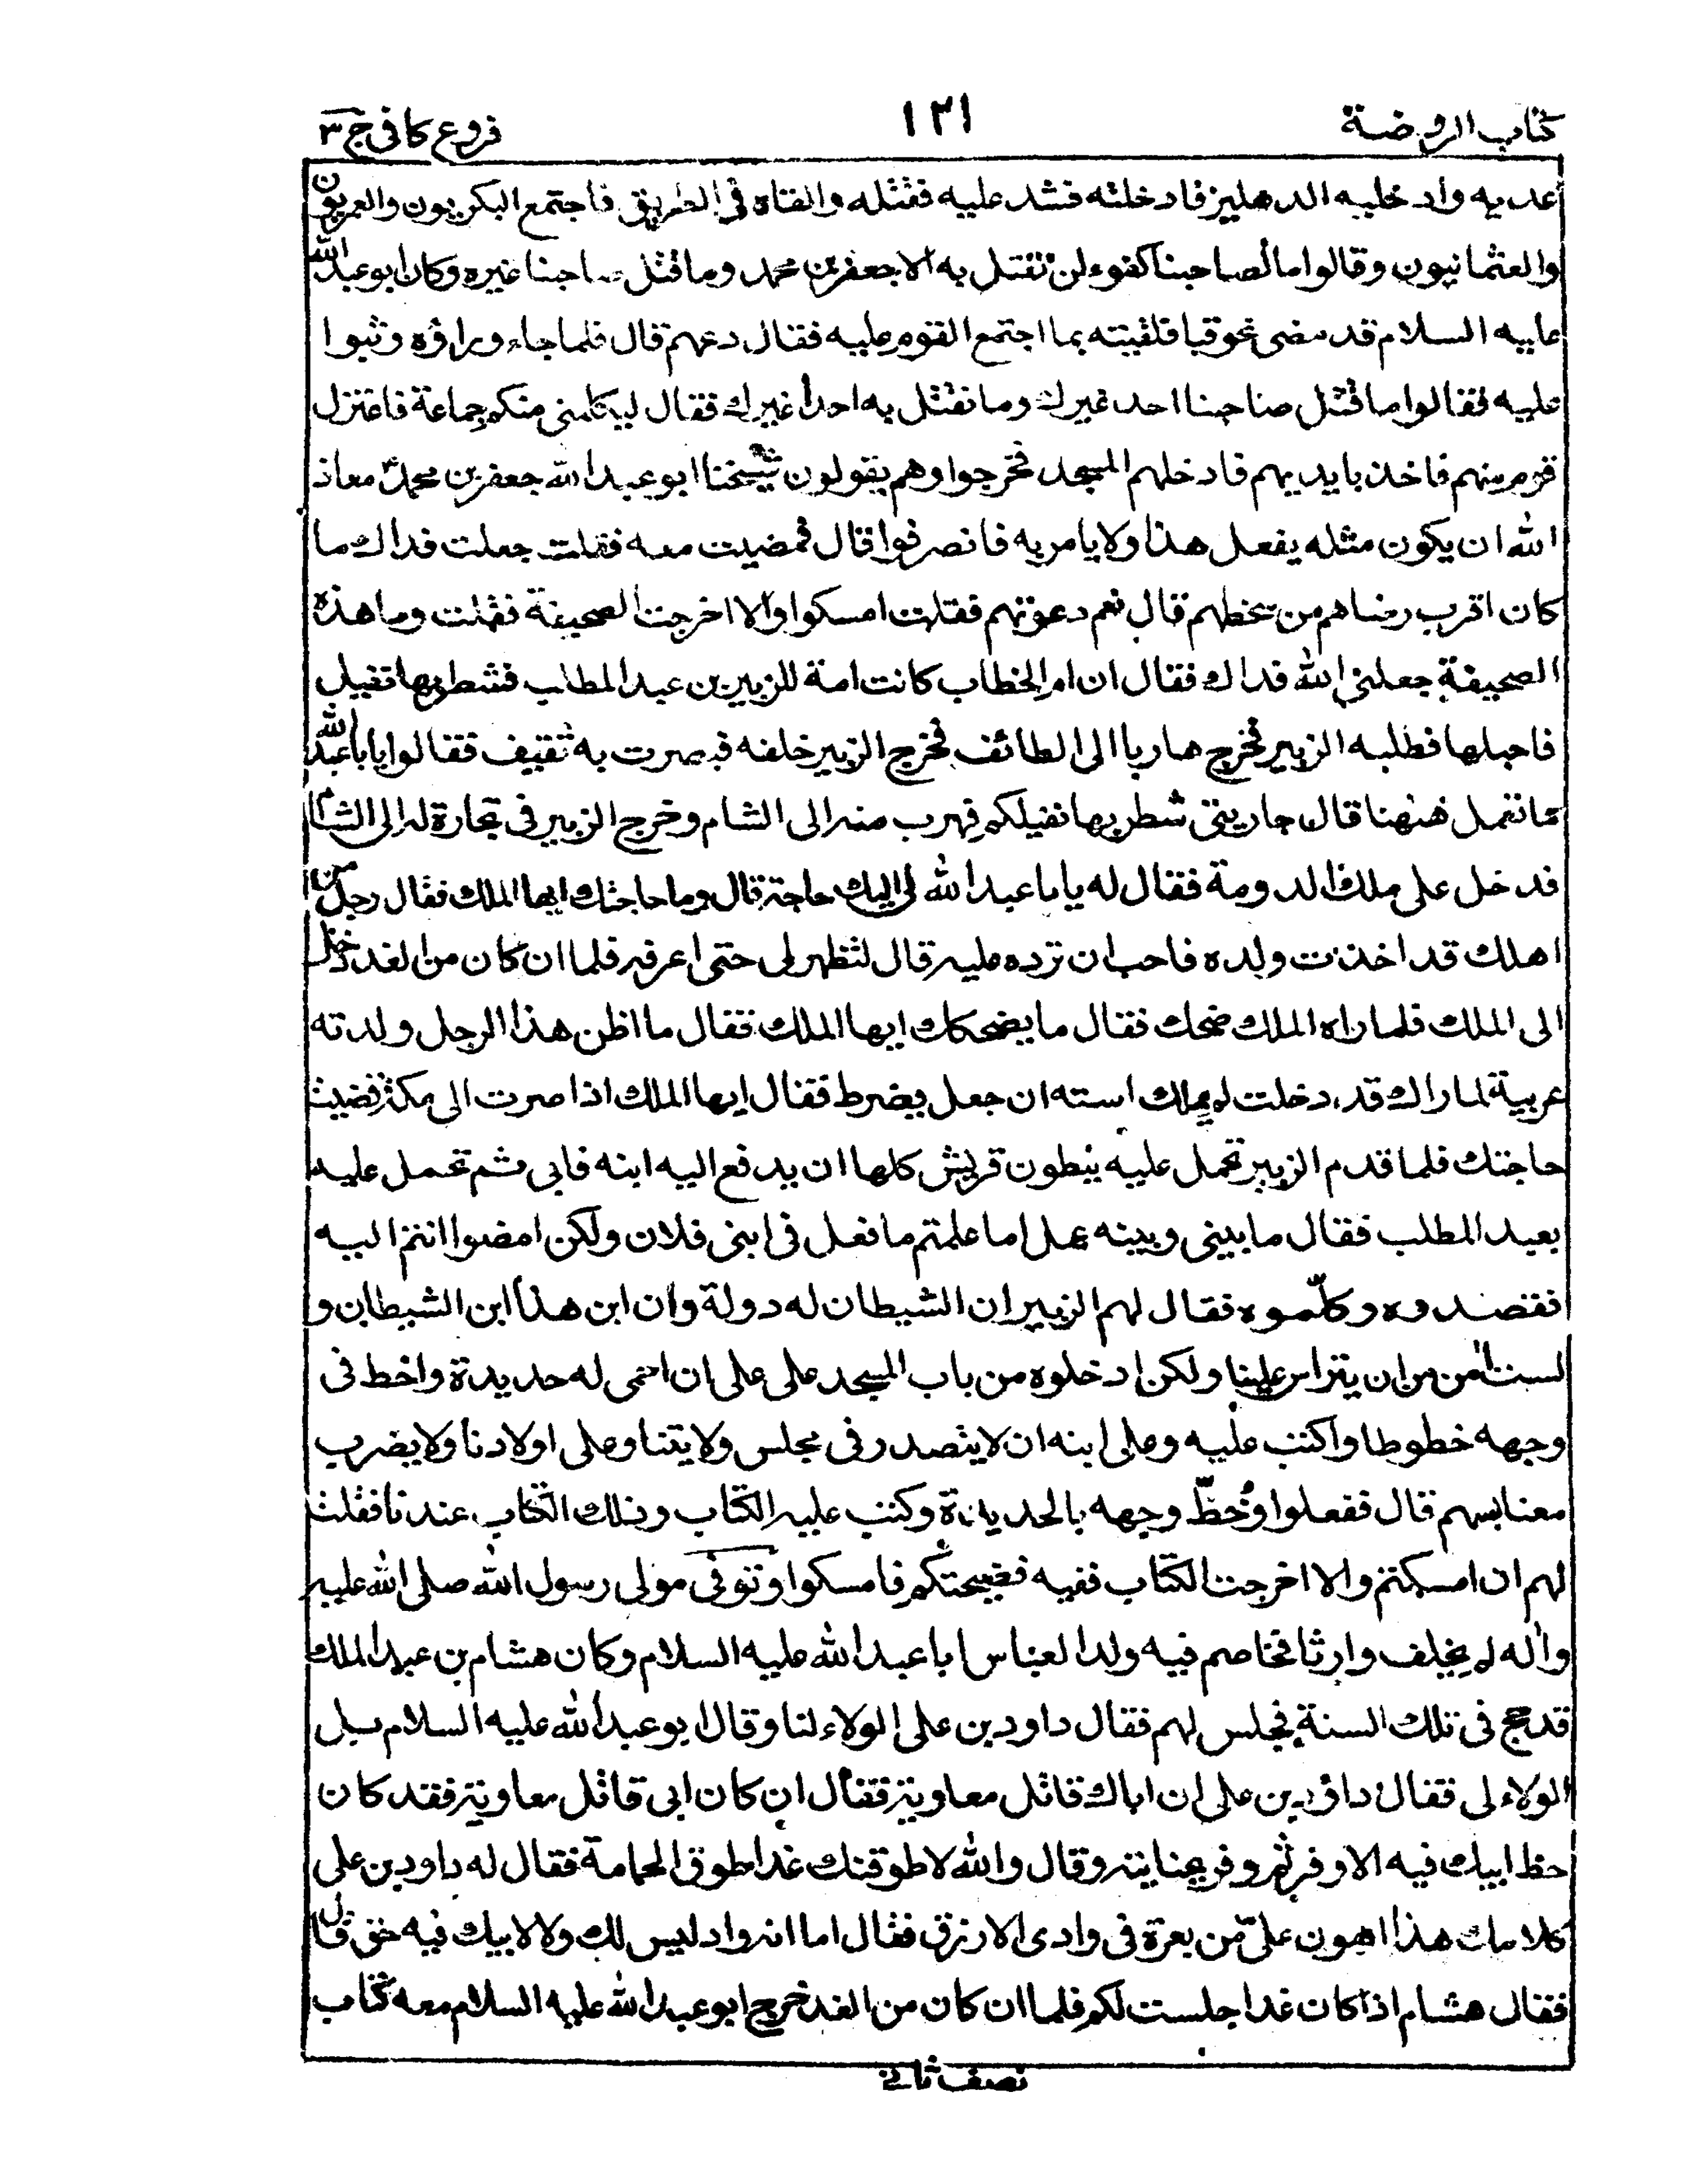 كتاب الروضة
١٢١
فروع كافى ج ٣
عديه وادخليه الدهليز فادخلته فشد عليه فقتله والقاه فى الطريق فاجتمع البكريون والعمريون
والعثمانيون وقالوا ما لصاحبنا كفوء لن نقتل به الا جعفر بن محمد وما قتل صاحبنا غيره وكان ابو عبد الله
عليه السلام قد مضى نحو قبا فلقيته بما اجتمع القوم عليه فقال دعهم قال فلما جاء وراؤه وثبوا
عليه فقالوا ما قتل صاحبنا احد غيرك وما نقتل به احدا غيرك فقال ليكلمنى منكم جماعة فاعتزل
قوم منهم فاخذ بايديهم فادخلهم المسجد فخرجوا وهم يقولون شيخنا ابو عبد الله جعفر بن محمد معاذ
الله ان يكون مثله يفعل هذا ولا يامر به فانصرفوا قال فمضيت معه فقلت جعلت فداك ما
كان اقرب رضاهم من سخطهم قال نعم دعوتهم فقلت امسكوا والا اخرجت الصحيفة فقلت وما هذه
الصحيفة جعلنى الله فداك فقال ان ام الخطاب كانت امة للزبير بن عبد المطلب فشطر بها نفيل
فاحبلها فطلبه الزبير فخرج هاربا الى الطائف فخرج الزبير خلفه فبصرت به ثقيف فقالوا يا با عبد الله
ما تعمل ههنا قال جاريتى شطر بها نفيلكم فهرب منه الى الشام وخرج الزبير فى تجارة له الى الشام
فدخل على ملك الدومة فقال له يا با عبد الله لى اليك حاجة قال وما حاجتك ايها الملك فقال رجل من
اهلك قد اخذت ولده فاحب ان ترده عليه قال ليظهر لى حتى اعرفه فلما ان كان من الغد دخل
الى الملك فلما راه الملك ضحك فقال ما يضحكك ايها الملك فقال ما اظن هذا الرجل ولدته
عربية لما راك قد دخلت لم يملك استه ان جعل يضرط فقال ايها الملك اذا صرت الى مكة قضيت
حاجتك فلما قدم الزبير تحمل عليه ببطون قريش كلها ان يدفع اليه ابنه فابى ثم تحمل عليه
بعبد المطلب فقال ما بينى وبينه عمل اما علمتم ما فعل فى ابنى فلان ولكن امضوا انتم اليه
فقصدوه وكلّموه فقال لهم الزبير ان الشيطان له دولة وان ابن هذا ابن الشيطان و
لست امن من ان يتراس علينا ولكن ادخلوه من باب المسجد على على ان احمى له حديدة واخط فى
وجهه خطوطا واكتب عليه وعلى ابنه ان لا يتصدر فى مجلس ولا يتنا وعلى اولادنا ولا يضرب
معنا بسهم قال ففعلوا وخطّ وجهه بالحديدة وكتب عليه الكتاب وذلك الكتاب عندنا فقلت
لهم ان امسكتم والا اخرجت الكتاب ففيه فضيحتكم فامسكوا وتوفى مولى رسول الله صلى الله عليه
واله لم يخلف وارثا فخاصم فيه ولد العباس ابا عبد الله عليه السلام وكان هشام بن عبد الملك
قد حج فى تلك السنة فجلس لهم فقال داود بن على الولاء لنا وقال ابو عبد الله عليه السلام بل
الولاء لى فقال داود بن على ان اباك قاتل معاوية فقال ان كان ابى قاتل معاوية فقد كان
حظ ابيك فيه الاوفر ثم وفر بجنايته وقال والله لاطوقنك غدا طوق الحمامة فقال له داود بن على
كلامك هذا اهون علىّ من بعرة فى وادى الازرق فقال اما انه واد ليس لك ولا لابيك فيه حق قال
فقال هشام اذا كان غدا جلست لكم فلما ان كان من الغد خرج ابو عبد الله عليه السلام معه كتاب
نصف ثانى